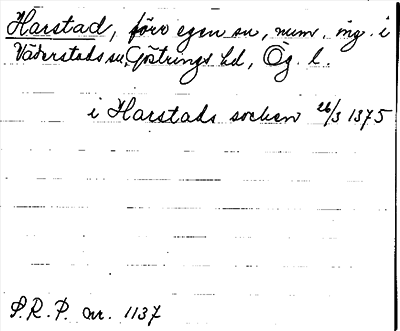 Harstad, förv egen sn, num. ing. i
Väderstads sn Göstrings hd, Ög. l.
i Harstads socken 26/3 1375
S.R.P. nr. 1137